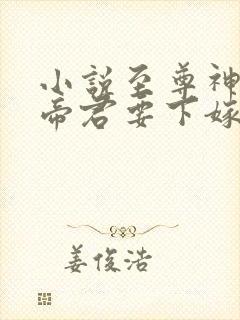 小说至尊神
帝君要下嫁
姜俊浩